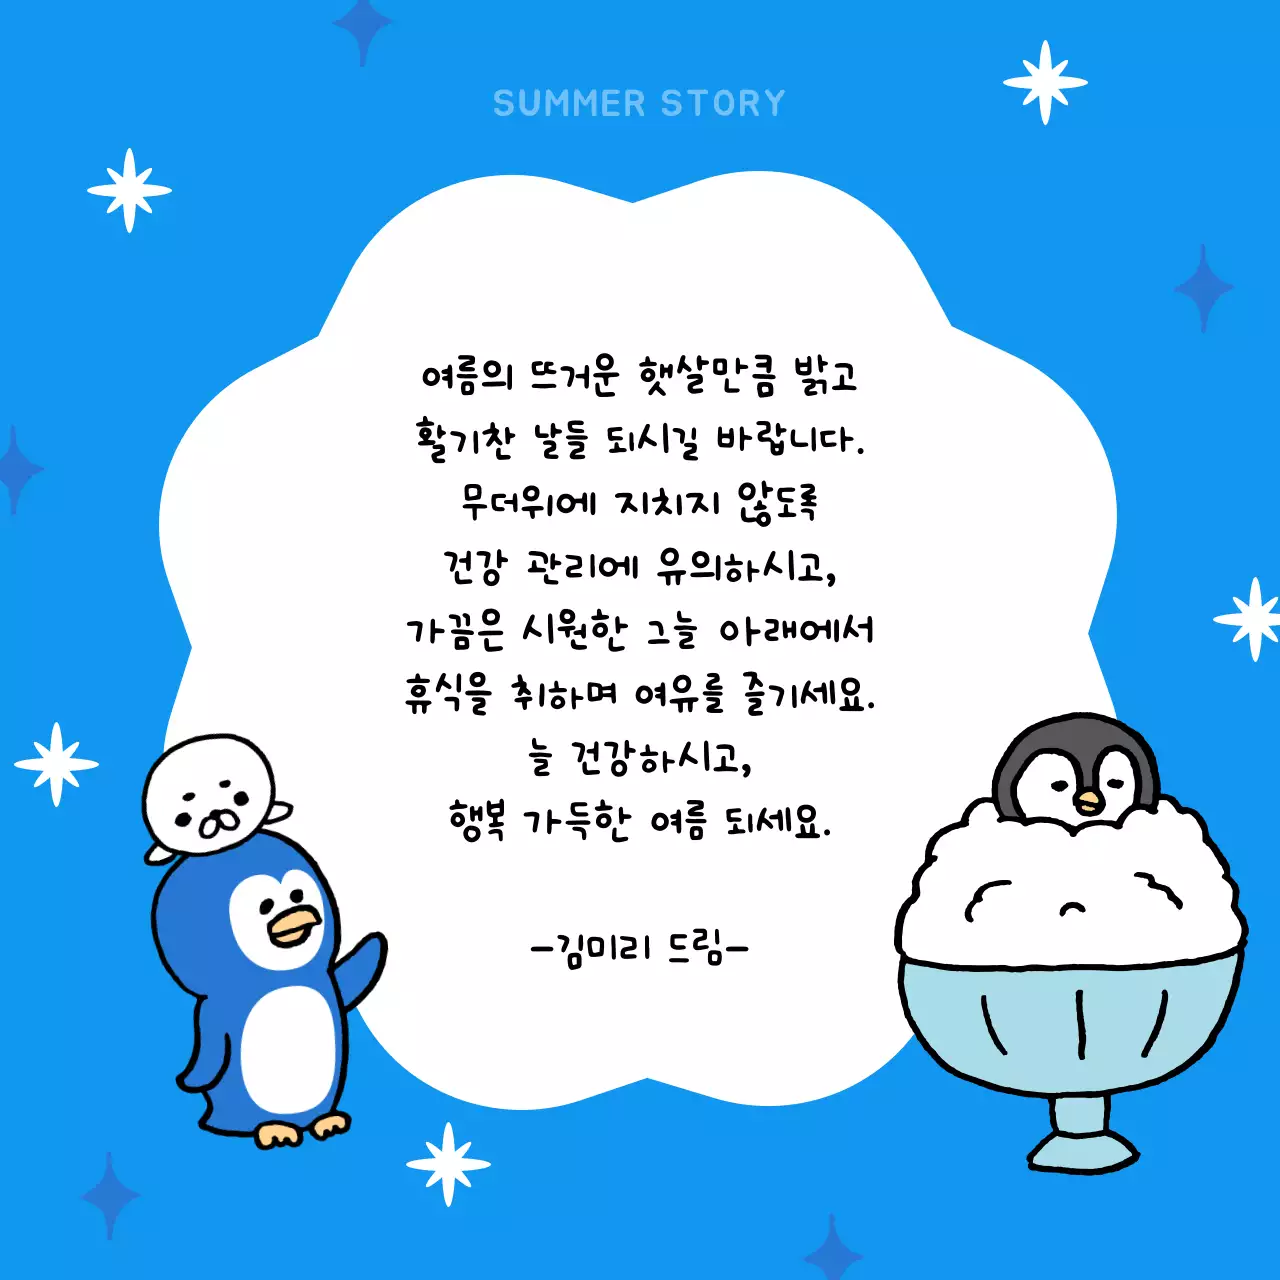 SUMMER STORY
여름의 뜨거운 햇살만큼 밝고
활기찬 날들 되시길 바랍니다.
무더위에 지치지 않도록
건강 관리에 유의하시고,
가끔은 시원한 그늘 아래에서
휴식을 취하며 여유를 즐기세요.
늘 건강하시고,
행복 가득한 여름 되세요.
-김미리 드림-